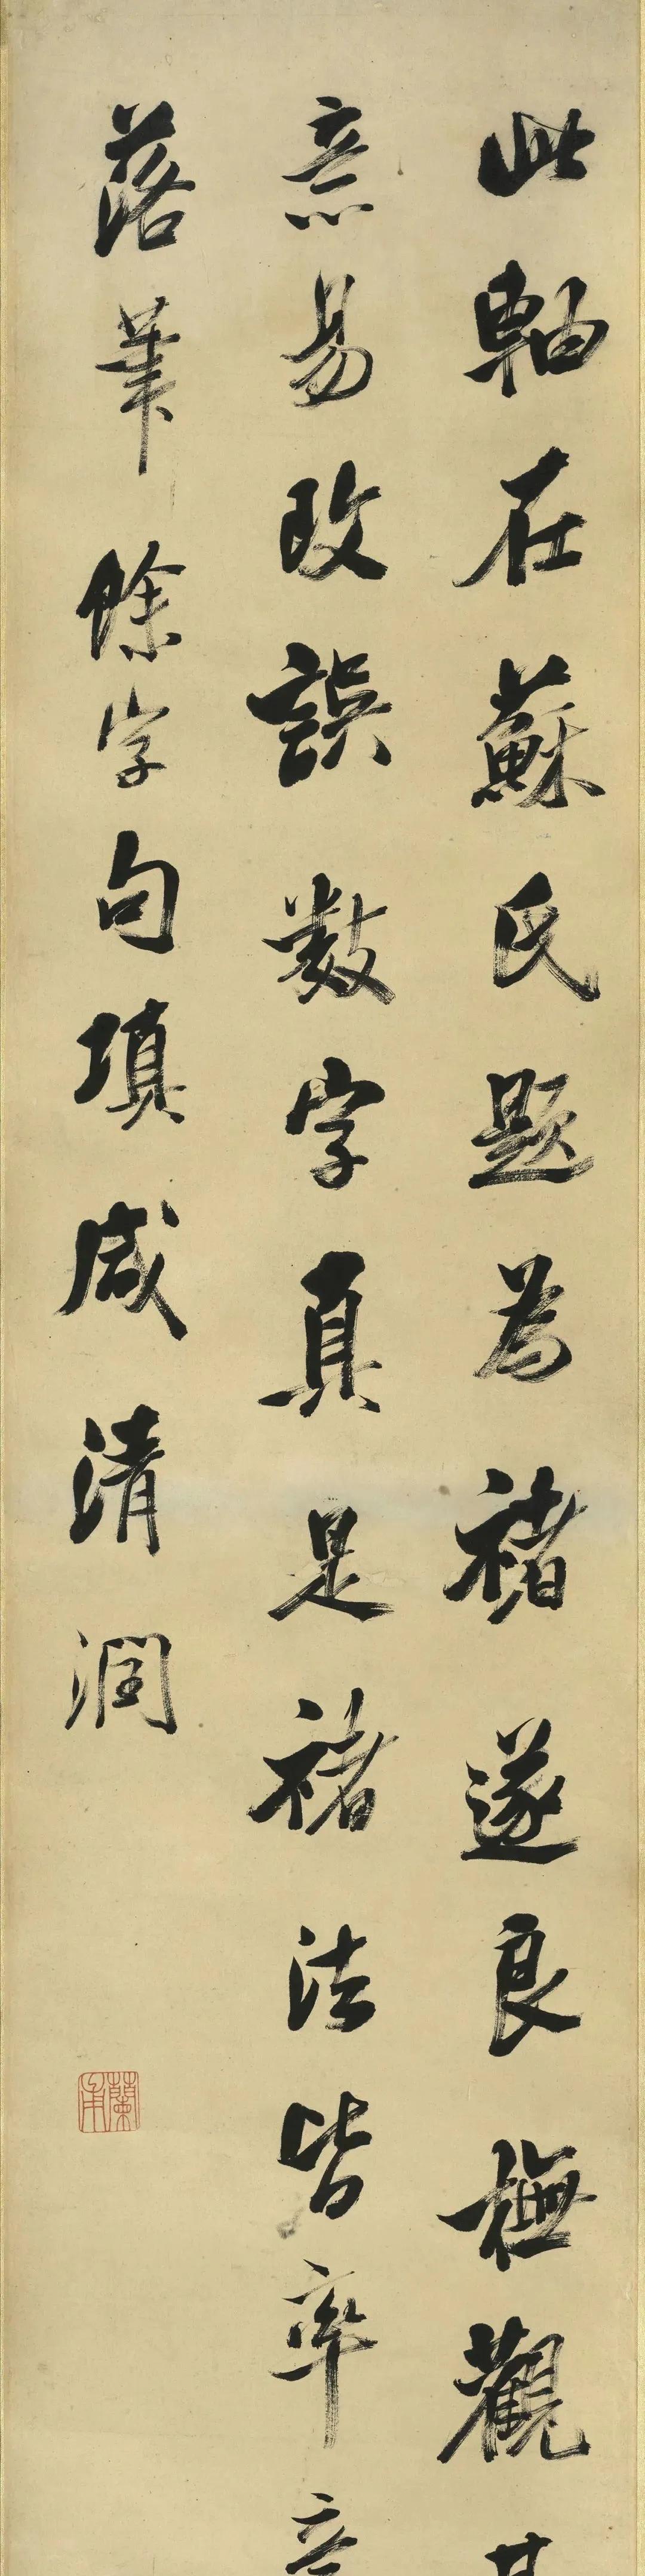 此軸在蘇氏題為褚遂良橅觀
意易改誤數字真是褚法皆率
落筆餘字句填咸清潤
蘭